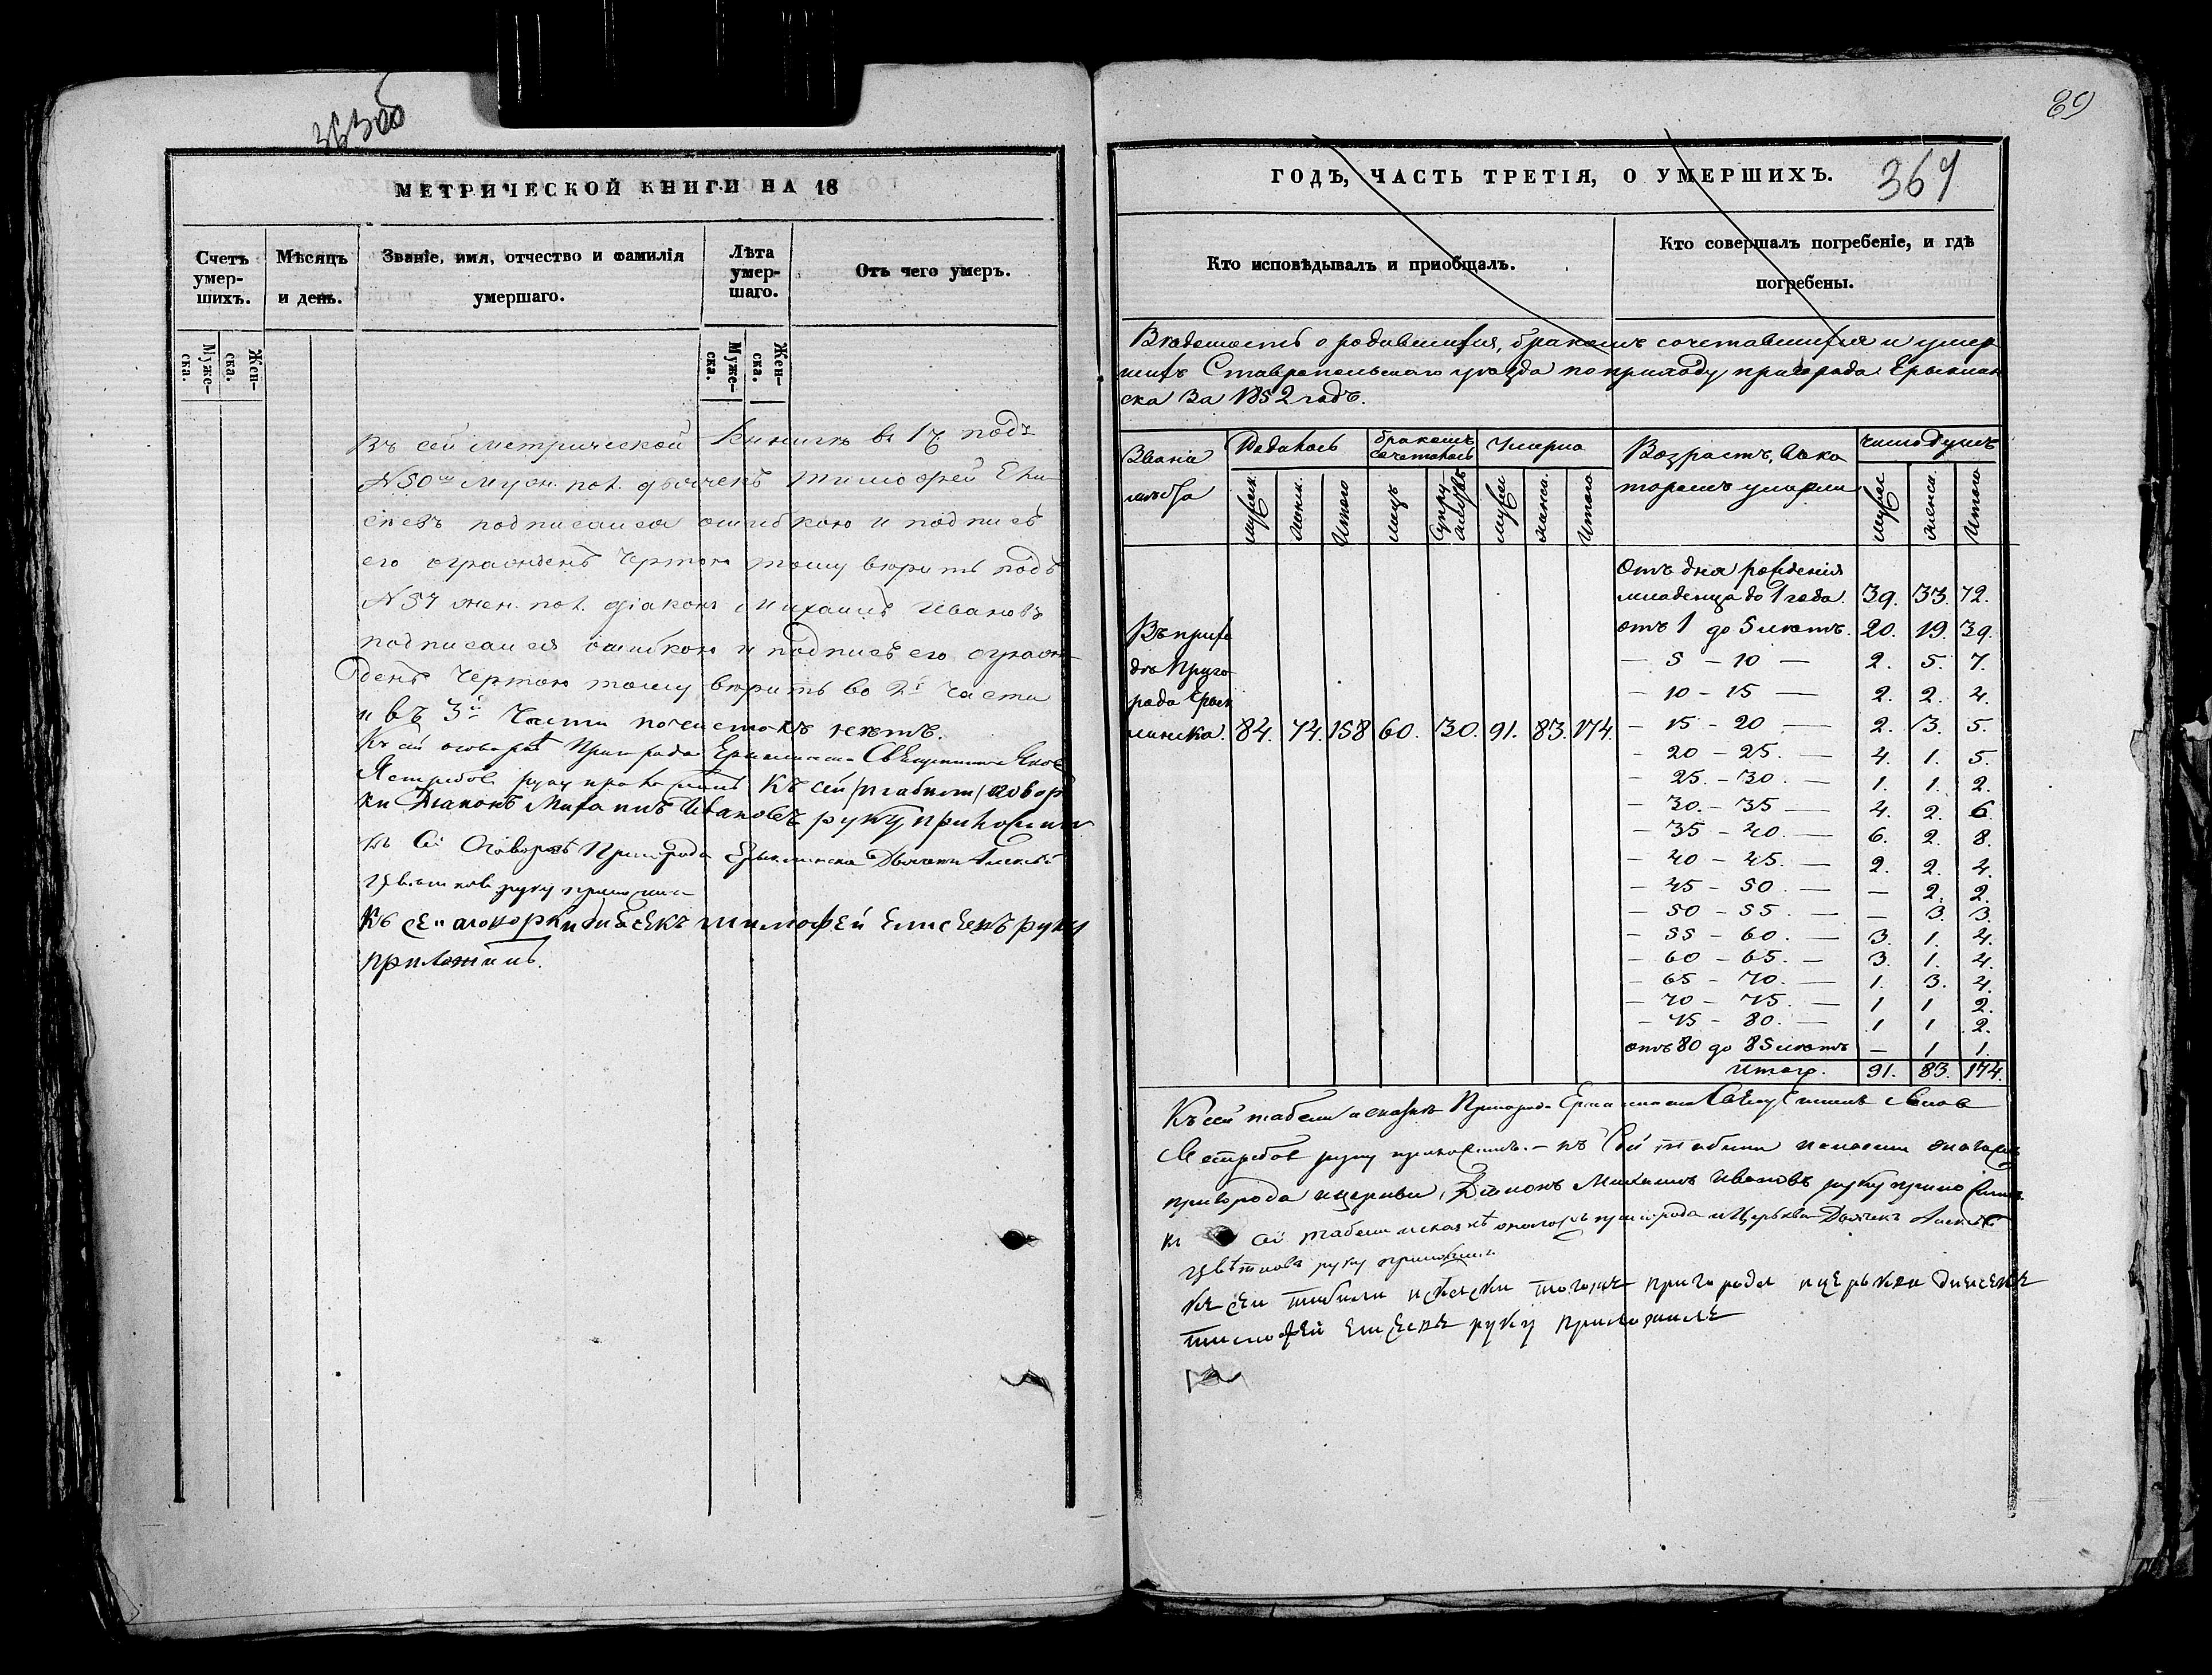 363об
МЕТРИЧЕСКОЙ КНИГИ НА 18
Счетъ умер-шихъ.
Мѣсяцъ и день.
Званіе, имя, отчество и фамилія умершаго.
Лѣта умер-шаго.
Отъ чего умеръ.
Муже-ска.
Жен-ска.
Муже-ска.
Жен-ска.
Въ сей метрической книгѣ въ 1й подъ
№50мъ муж. пол. дьячекъ Тимофей Ели-
сеевъ подписался ошибкою и подпись
его огражденъ чертою тому вѣрить подъ
№57 жен. пол. діаконъ Михаилъ Ивановъ
подписался ошибкою и подпись его ограж-
денъ чертою тому вѣрить во 2й части
и въ 3й части почистокъ нѣтъ.
Къ сей оговоркѣ Пригорода Ерыклинска Священникъ Яков
Ястребов руку приложилъ Къ сей оговор
ки Діаконъ Михаилъ Ивановъ руку приложилъ
къ сей оговоркѣ Пригорода Ерыклинска Дьячекъ Алексѣй
Цвѣтковъ руку приложилъ
Къ сей аговорки диячекъ тимофей Елисеевъ руку
приложилъ.
89
ГОДЪ, ЧАСТЬ ТРЕТІЯ, О УМЕРШИХЪ.
364
Кто исповѣдывалъ и приобщалъ.
Кто совершалъ погребеніе, и гдѣ погребены.
Вѣдомость о родившихся, бракомъ сочетавшихся и умер
шихъ Ставропольскаго уѣзда по приходу пригорода Ерыклин
ска за 1852 годъ.
Званіе мѣста
Родилось
бракомъ сочеталось
Умерло
Возрастъ, въ ко торомъ умерли
число душъ
мужск. женск. Итого лицъ супружествъ мужес женск. Итого мужес женск. Итого
Отъ дня рожденія
младенца до 1 года. 39. 33. 72.
отъ 1 до 5 лѣтъ. 20. 19. 39.
— 5 — 10 — 2. 5. 7.
— 10 — 15 — 2. 2. 4.
Въ прихо
дѣ Приго
рода Ерык
линска. 84. 74. 158 60. 30. 91. 83. 174.
— 15 — 20 — 2. 3. 5.
— 20 — 25. — 4. 1. 5.
— 25. — 30. — 1. 1. 2.
— 30. — 35 — 4. 2. 6.
— 35 — 40. — 6. 2. 8.
— 40 — 45. — 2. 2. 4.
— 45 — 50. — — 2. 2.
— 50 — 55. — — 3. 3.
— 55 — 60. — 3. 1. 4.
— 60 — 65. — 3. 1. 4.
— 65 — 70. — 1. 3. 4.
— 70 — 75. — 1 1 2.
— 75 — 80. — 1 1 2.
отъ 80 до 85 лѣтъ — 1 1.
Итого. 91. 83. 174.
Къ сей табели Пригорода Ерыклинска Священникъ Яковъ
Ястребов руку приложилъ. — къ сей табели
пригорода и церкви, Діаконъ Михаилъ Ивановъ руку приложилъ.
къ сей табели пригорода и Церкви Дьячекъ Алексѣй
Цвѣтковъ руку приложилъ
къ сеи табили тогожъ пригорода ицерькви диячекъ
тимофей Елисеевъ руку приложилъ